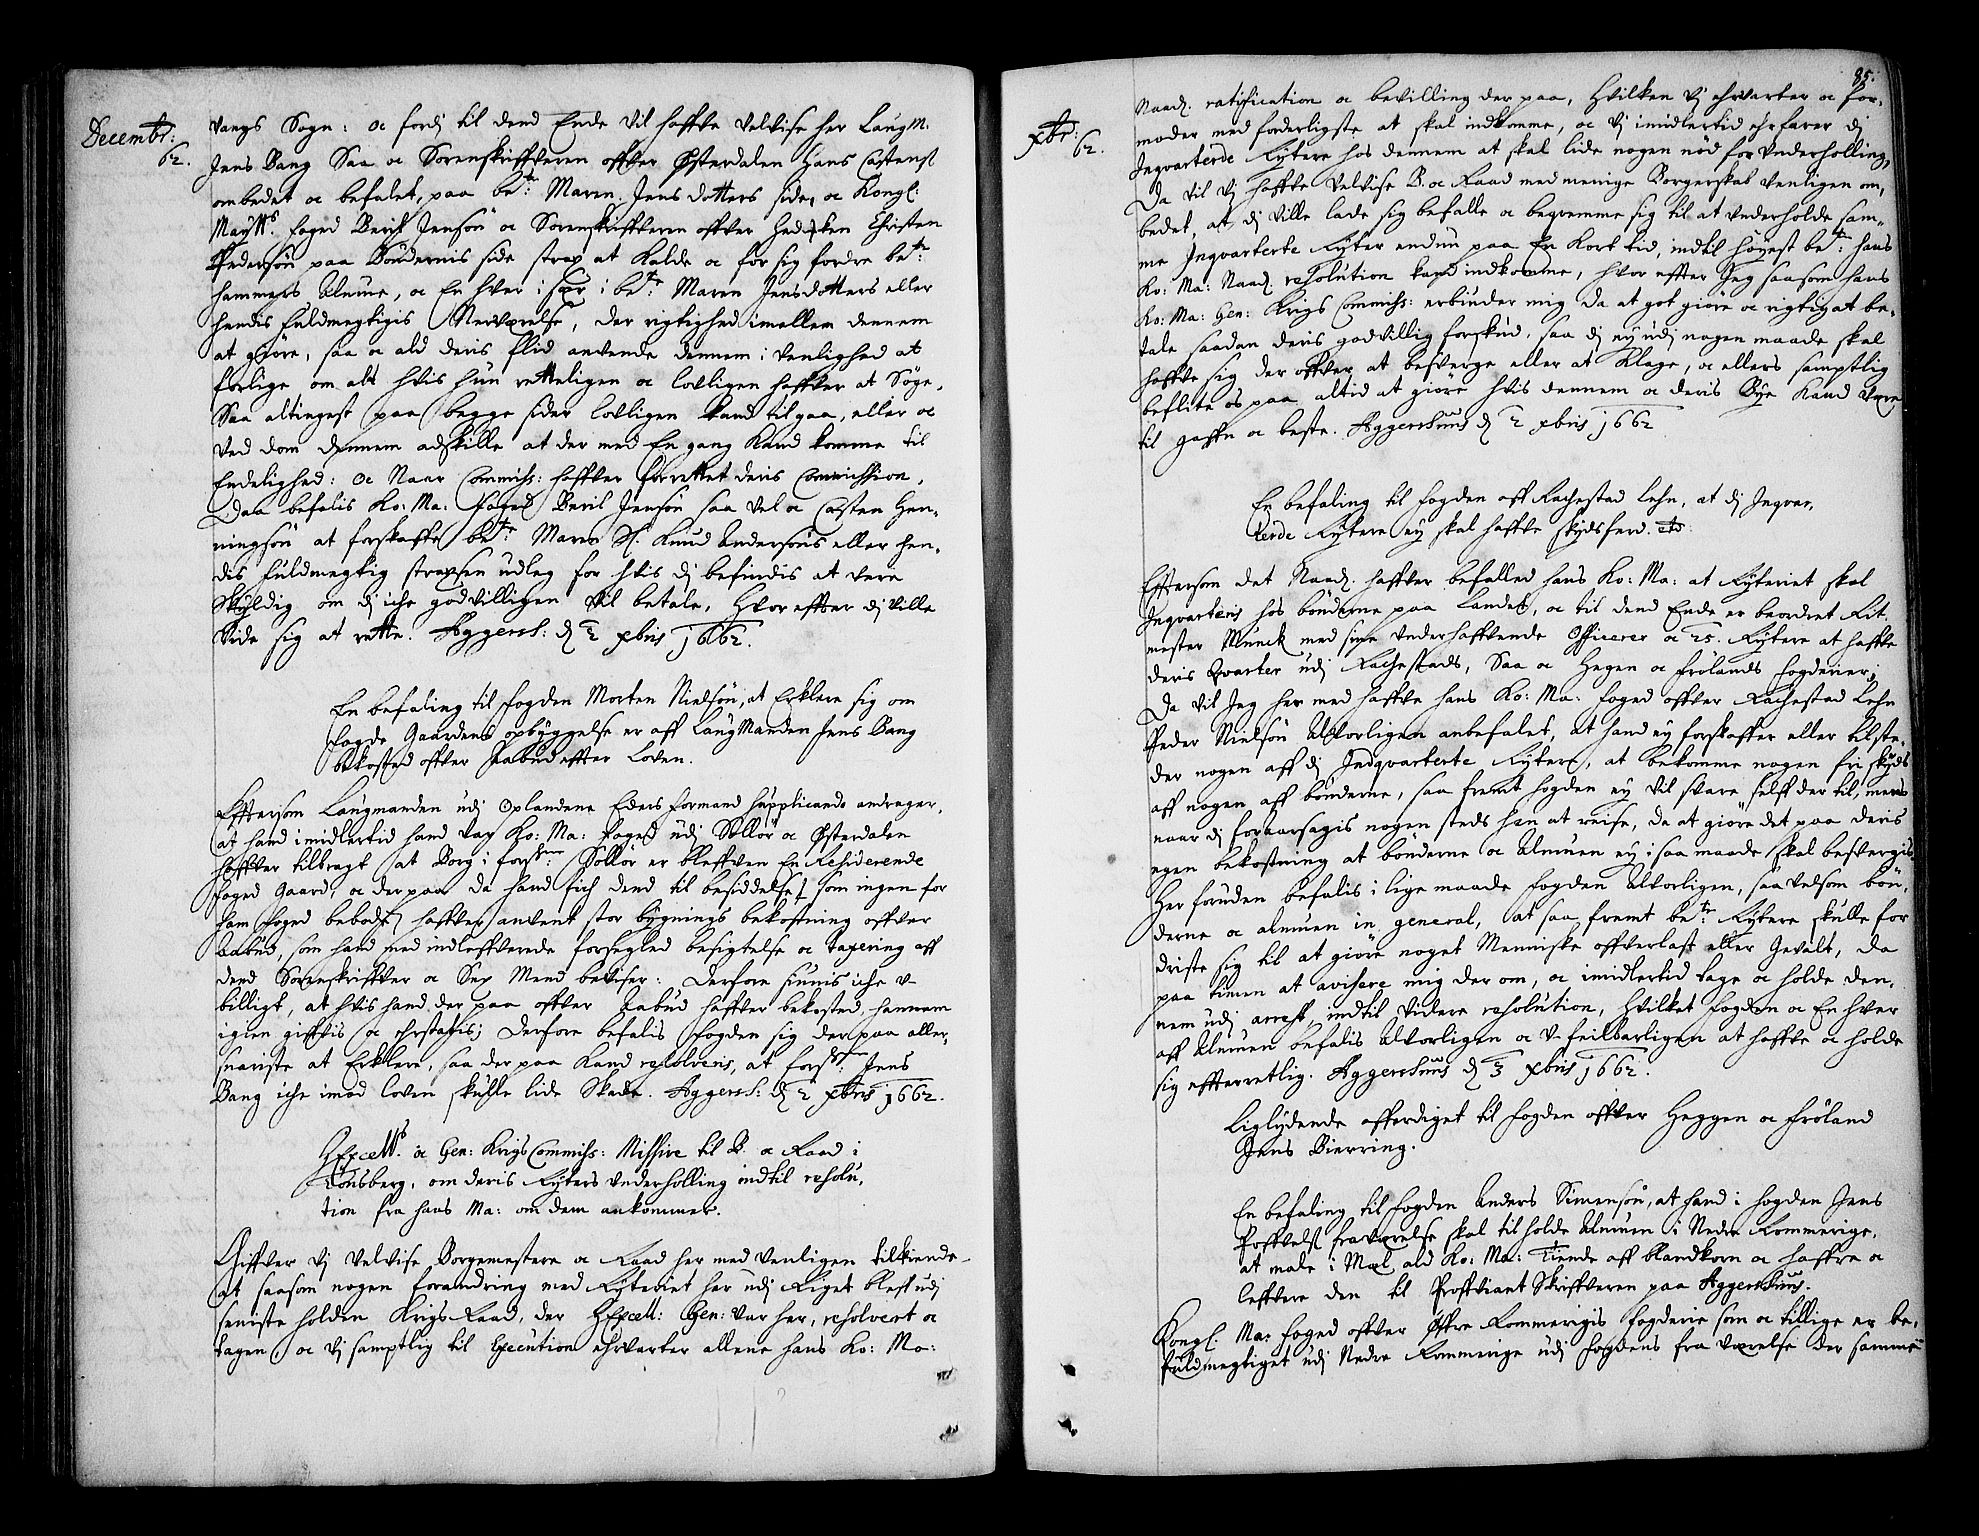 Decembr:
62.
vangs Sogn: oc fordj til dend Ende vil haffve velvise her Laugm:
Jens Bang Saa oc Sorenskriffveren offver Østerdalen Hans Castens
ombedet oc befalet, paa bete: Maren Jensdotters side, oc Kongl:
Maytts. foged Beril Jensøn oc Sorenskriffveren offver Hedmken Christen
Pedersøn paa Bøndernis side strax at kalde oc for sig fordre bete:
hammers Almue, oc En hver i sær i bete: Maren Jensdotters eller
hendis fuldmegtigis Nerværelse, der rigtighed imellem dennem
at giøre, saa oc ald deris flid anvende dennem i venlighed at
forlige om alt hvis hun retteligen oc lovligen haffver at Søge,
Saa altingest paa begge sider lovligen kand tilgaa, eller oc
ved dom dennem adskille at der med En gang kand komme til
Endelighed: oc Naar Commiss: haffver forrettet deris Commission,
Daa befalis Ko: Ma: foged Beril Jensøn saa vel oc Casten Hen-
ningsøn at forskaffe bete: Maren Sl. Knud Andersøns eller hen-
dis fuldmegtig straxsen udleg for hvis dj befindis at vere
Skyldig om dj iche godvilligen vil betale, Hvoreffter dj ville
Vide sig at rette. Aggersh: d 2 xbris 1662.
En befaling til fogden Morten Nielsøn, at Erklere sig om
fogde Gaardens opbyggelse er aff Laugmanden Jens Bang
bekosted offver Aabud effter Loven.
Effterson Laugmanden udj Oplandene Eders formand supplicando andrager,
at hand imidlertid hand var Ko: Ma: foged udj Solløer oc Østerdalen
haffver tilbragt at Borg i forschr: Solløer er bleffven En Residerende
foged Gaard, oc der paa da hand fich dend til besiddelse, som ingen for
ham foged beboede haffver anvent stor bygnings bekostning offver
aabud, som hand med indleffverede forsegled besigtelse oc taxering aff
dend Sorenskriffver oc Sex Mend beviser: Derfore siunis iche u-
billigt, at hvis hand der paa offver Aabud haffver bekosted, hannem
igien giffvis oc ehrstatis; Derfore befalis fogden sig der paa aller-
snariste at Erklere, saa der paa kand resolveris, at forschr: Jens
Bang iche imod loven skulle lide Skade. Aggersh: d 2 xbris 1662.
H Excells. oc Gen: Krigs Commiss: Missive til B. oc Raad i
Tønsberg, om deris Rytters Underholling indtil resolu-
tion fra hans Ma: om dem ankommer.
Giffver vj velvise Borgemestere oc Raad her med venligen tilkiende
at saasom nogen forandring med Rytteriet her udj Riget bleff udj
seniste holden Krigs Raad, der H Excell: Gen: var her, resolvert oc
tagen oc vj samptlig til Execution ehrvarter allene hans Ko: Ma:
85.
xbr:
62.
Naadl. ratification oc bevilling der paa, Hvilken vj ehrvarter oc for-
moder med forderligste at skal indkomme, oc vj imidlertid ehrfarer dj
Inqvarterde Rytere hos dennem at skal lide nogen nød for underholling,
Da vil vj haffve velvise B. oc Raad med menige Borgerskab venligen om-
bedet, at dj ville lade sig befalle oc beqvemme sig til at underholde sam-
me Inqvarterte Ryter endnu paa En kort tid, indtil høyest bete: hans
Ko: Ma: Naadl. resolution kand indkomme, hvor effter Jeg saasom hans
Ko: Ma: Gen: Krigs Commiss: erbiuder mig da at got giøre oc rigtig at be-
tale saadan deris godvillig forskud, saa dj ey udj nogen maade skal
haffve sig der offver at besverge eller at klage, oc ellers samptlig
beflite os paa altid at giøre hvis dennem oc deris Bye kand være
til gaffn oc beste. Aggershuus d 2 xbris 1662
En befaling til fogden aff Rachestad Lehn, at dj Inqvar-
terde Rytere ey skal haffve skydsferd. etc
Efftersom det Naadl. haffver befalled hans Ko: Ma: at Ryteriet skal
Inqvarteris hos bønderne paa Landet, oc til dend Ende er beordret Rit-
mester Munck med sine Underhaffvende Officerer oc 25. Rytere at haffve
deris Qvarter udj Rachestads, Saa oc Hegen oc Frølands fogderier;
Da vil Jeg her med haffve hans Ko: Ma: foged offver Rachestad Lehn
Peder Nielsøn Alvorligen anbefalet, at hand ey forskaffer eller tilste-
der nogen aff dj Indqvarterte Rytere, at bekomme nogen fri skyds
aff nogen aff bønderne, saa fremt fogden ey vil svare selff der til, mens
naar dj foraarsagis nogen steds hen at reise, da at giøre det paa deris
egen bekostning at bønderne oc Almuen ey i saa maade skal besvergis,
Her foruden befalis i lige maade fogden Alvorligen, saa velsom bøn-
derne oc almuen in general, at saa fremt bete: Rytere skulle for
driste sig til at giøre noget Menniske offverlast eller Gevalt, da
paa timen at avisere mig der om, oc imidlertid tage oc holde den-
nem udj arrest, indtil videre resolution, Hvilket fogden oc En hver
aff Almuen befalis Alvorligen oc u-feilbarligen at haffve oc holde
sig effterretlig. Aggershuus d 3 xbris 1662.
Liglydende afferdiget til fogden offver Heggen oc Frøland
Jens Bierring.
En befaling til fogden Anders Simensøn, at hand i fogden Jens
Poffvels fraværelse skal tilholde Almuen i Nedre Rommerige,
at male i Mæl ald Ko: Ma: Tiende aff blandkorn oc haffre oc
leffvere den til Proffviant Skriffveren paa Aggershuus.
Kongl: Ma: foged offver Øffre Rommerigis fogderie som oc tillige er be-
fuldmegtiget udj Nedre Rommerige udj fogdens fra værelse der samme